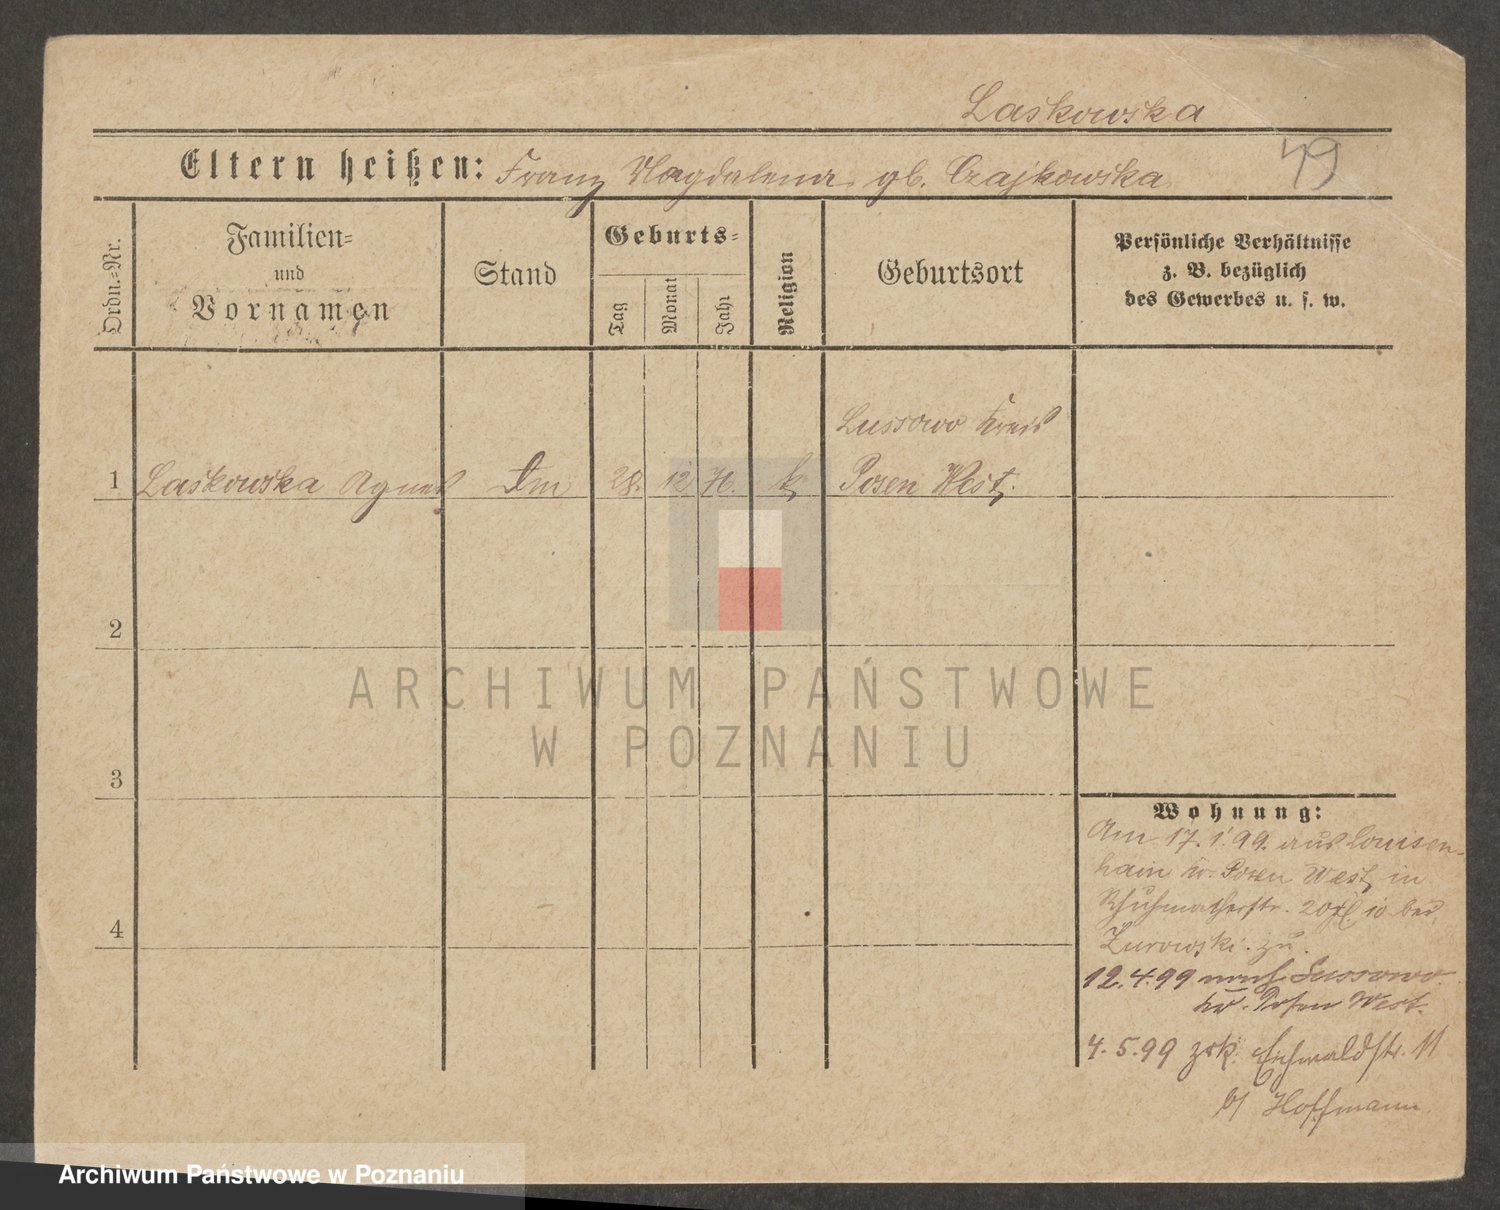 Laskowska
49
Eltern heißen: Franz Magdalena gb. Czajkowska
Ordn.-Nr.
Familien-
und
Vornamen
Stand
Geburts-
Tag
Monat
Jahr
Religion
Geburtsort
Persönliche Verhältnisse
z. B. bezüglich
des Gewerbes u. s. w.
Lussowo Kreis
1 Laskowska Agnes 28. 12 k. Posen West.
2
ARCHIWUM PAŃSTWOWE
W POZNANIU
3
Wohnung:
Am 17.1.99. aus Louisen-
hain Kr. Posen West, in
bei
4
Zurowski. zu.
12.4.99 nach Lussowo
Kr. Posen West.
4.5.99 zrk. Eichwaldstr. 11
b/ Hoffmann
Archiwum Państwowe w Poznaniu